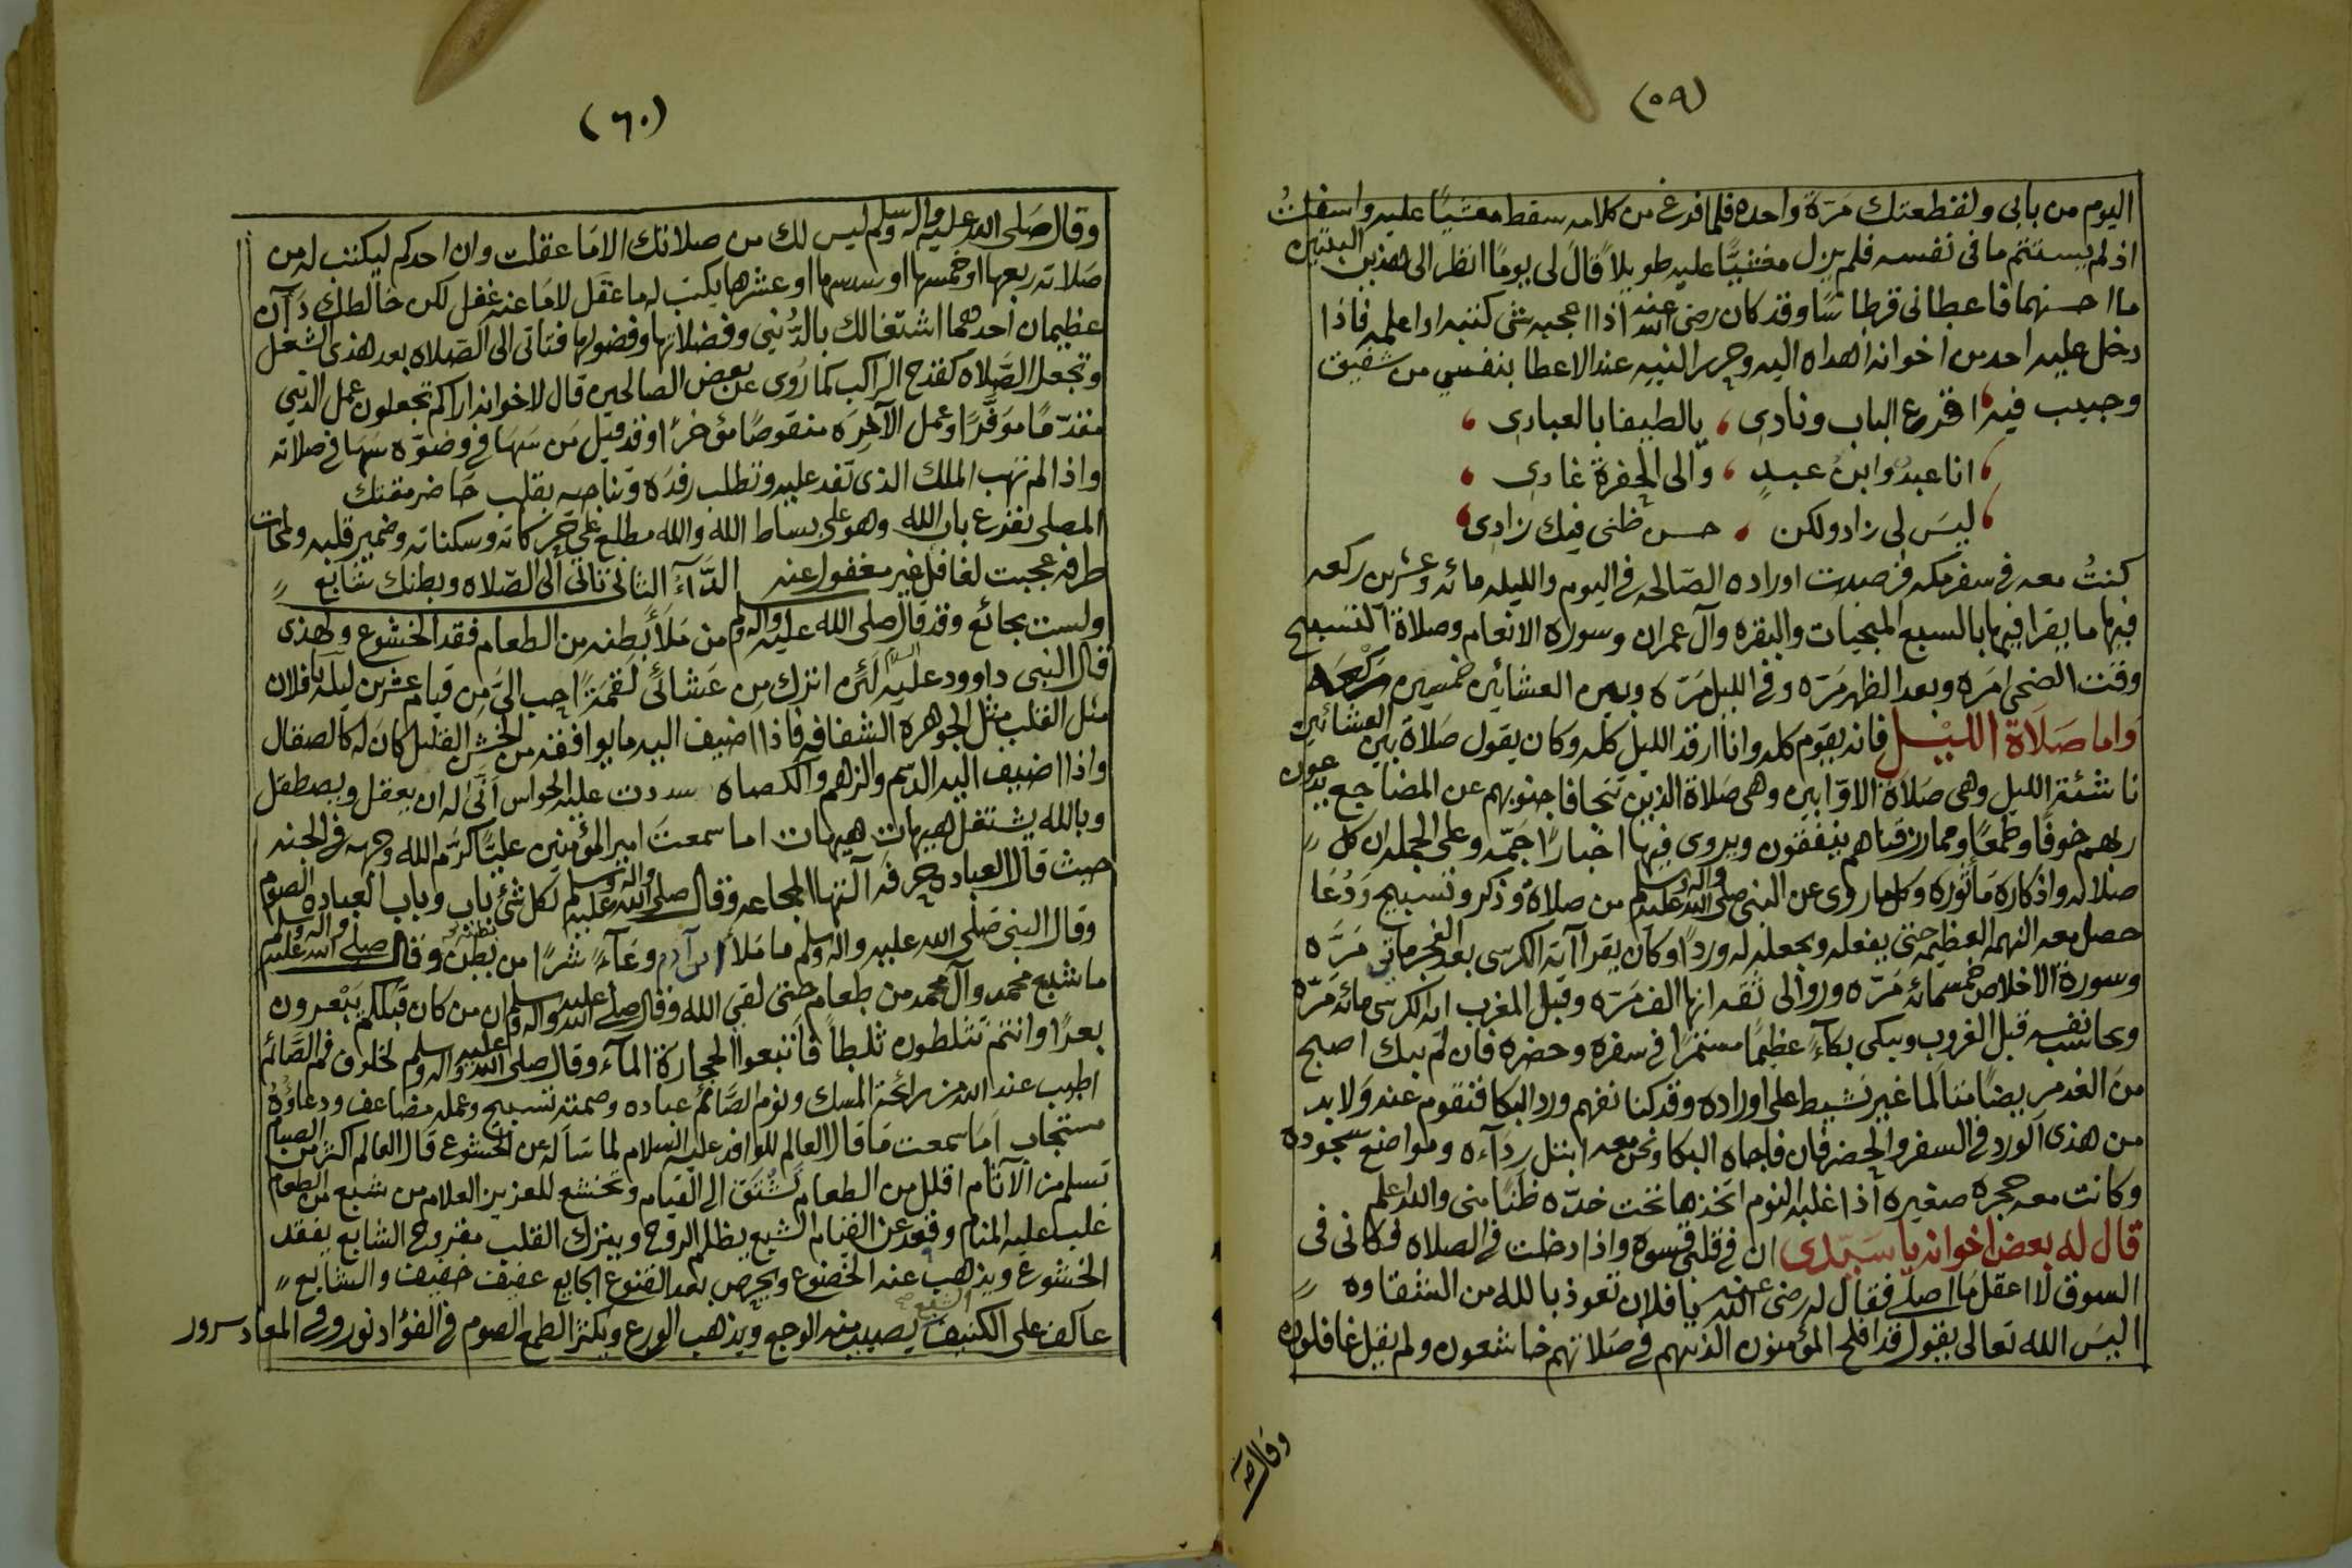 (٥٩)
اليوم من بابى ولقطعتك مَرّة واحده فلما فرغ من كلامه سقط مغشيًا عليه واسفلتُ
اذ لم يستتم ما فى نفسه فلم يزل مغشيًا عليه طويلاً قال لى يومًا انظر الى هذين البيتين
ما احسنهما فاعطانى قرطاسًا وقد كان رضى الله عنه اذا اعجبه شى كتبه او اعلمه فاذا
دخل عليه احد من اخوانه اهداه اليه وحرر النيه عند الاعطا بنفسي من شفيق
وحبيب فيه اقرع الباب ونادى ، يالطيفا بالعبادى ،
، انا عبدٌ وابن عبدٍ ، والى الحفرة غادى ،
، ليسَ لى زاد ولكن ، حسن ظنى فيك زادى ،
كنتُ معه فى سفر مكه فرصدت اوراده الصّالحه فى اليوم والليله مائه وعشرين ركعه
فيها ما يقرا فيها بالسبع المنجيات والبقره وآل عمران وسوره الانعام وصلاة التسبيح
وقت الضحى امَره وبعد الظهر مَرّه وفى الليل مَرّه وبين العشائين خمسين رَكْعَه
واما صَلاَة الليْل فانه يقوم كله وانا ارقد الليل كله وكان يقول صَلاة بين العشائين
ناشئة الليل وهى صَلاَة الاوّابين وهى صَلاة الذين تتجافا جنوبهم عن المضاجع يدعون
ربهم خوفًا وطمعًا ومما رزقناهم ينفقون ويروى فيها اخبارًا جَمّه وعلى الجمله ان كل
صلاله واذكاره مَاثوره وكل ما روى عن النبى صلى الله عليه واله وسلم من صلاة وذكر وتسبيح وَدُعَا
حصل معه النهمه العظيمه حتى يفعله ويجعله له وردًا وكان يقرا آية الكرسى بعد الفجر ماتى مَرَّه
وسورة الاخلاص خمسمائه مَرّه وروالى ثقه انها الف مَرّه وقبل المغرب ايه الكرسى مائه مَرّه
ويحاسب نفسه قبل الغروب ويبكى بكآءً عظيمًا مستمرًا فى سفره وحضره فان لم يبك اصبح
منَ الغد مريضًا متالمًا غير نشيط على اوراده وقد كنا نفهم ورد البكا فنقوم عنه وَلا بد
من هذى الورد فى السفر والحضر فان فاجاه البكا ونحن معه ابتل ردَآءه ومواضع سجوده
وكانت معه حجره صغيره اذا غلبه النوم اتخذها تحت خدّه ظنًا منى والله اعلم
قال له بعض اخوانه يا سَيّدى ان فى قلبى قسوة واذا دخلت فى الصلاه فكانى فى
السوق لا اعقل مَا اصلى فقال له رضى الله عنه يا فلان تعوذ بالله من الشقاوه
اليسَ الله تعالى يقول قد افلح المؤمنون الذين هم فى صَلاتهم خاشعون ولم يقل غافلون
وقال صَلى
(٦٠)
وقال صَلى الله عليه واله وسلم ليس لك من صلاتك الا مَا عقلت وان احدكم ليكتب له من
صَلاته ربعها او خمسها او سدسها او عشرها يكتب له ما عَقَل لا مَا عنه غفل لكن خالطك دَآن
عظيمان احدهما اشتغالك بالدُّنيي وفضلاتها وفضولها فتاتى الى الصَّلاه بعد هذى الشغل
وتجعل الصَّلاة كقدح الراكب كما رُوى عن بعض الصالحين قال لاخوانه اراكم تجعلون عمل الدنيي
مقدّمًا موَفّرًا وعمل الآخِرَه منقوصًا مؤخرًا وقد قيل مَن سَهَا فى وضوّه سَهَا فى صلاته
واذا لم تهب الملك الذى تفد عليه وتطلب رفدَه وتناجيه بقلب حَاضر مقتك
المصلى يقرع باب الله وهو على بساط الله والله مطلع على حركاته وسكناته وضمير قلبه ولمحات
طرفه عجبت لغافل غير مغفول عنه الدَّآءُ الثانى تاتى الى الصّلاه وبطنك شابع
ولست بجائع وقد قال صلى الله عليه واله وسلم من مَلأَ بطنه من الطعام فقد الخشوع ولهذى
قال النبى داوود عليه السلام لَئن اترك من عَشائى لَقمَةً احب الىّ من قيام عشرين ليله يا فلان
مثل القلب مثل الجوهرة الشفافه فاذا اضيف اليه ما يوافقه من الخشن القليل كان له كالصقال
واذا اضيف اليه الدسم والزهم والكصاه سددت عليه الحواس اَنّى له ان يعقل ويصطقل
وبالله يشتغل هيهات هيهات اما سمعت امير المؤمنين عليًّا كرّم الله وجهه فى الجنه
حيث قال العباده حرفه آلتها المجاعه وقال صلى الله عليه واله وسلم لكل شئ باب وباب العباده الصوم
وقال النبى صَلّى الله عليه واله وسلم ما مَلأَ ابن آدم وعَآءً شرًا من بطن وقال صلى الله عليه واله وسلم
ما شبع محمد وآل محمد من طعام حتى لقى الله وقال صلى الله عليه واله وسلم ان من كان قبلكم يَبْعرون
بعرًا وانتم تثلطون ثلطاً فأتبعوا الحجارة المآء وقال صلى الله عليه واله وسلم لخلوف فم الصَّائم
اطيب عند الله من رائحة المسك ونوم الصَّائم عباده وصمته تسبيح وعمله مضاعف ودعاؤُه
مستجاب اَمَا سمعت مَا قال العالم للوافد عليه السلام لما سَاَله عن الخشوع قال العالم اكثر من الصيام
تسلم من الآثام اقلل من الطعام تشتق الى القيام وتخشع للعزيز العلام من شبع من الطعام
غلب عليه المنام وقعد عن القيام الشبع يظلم الروح ويترك القلب مقروح الشابع يفقد
الخشوع ويذهب عنه الخضوع ويحرص بعد القنوع الجايع عفيف خفيف والشابع
عاكف على الكنيف الشبع يصيب منه الوجع ويذهب الورع ويكثر الطمع الصوم فى الفؤاد نور وفى المعاد سرور